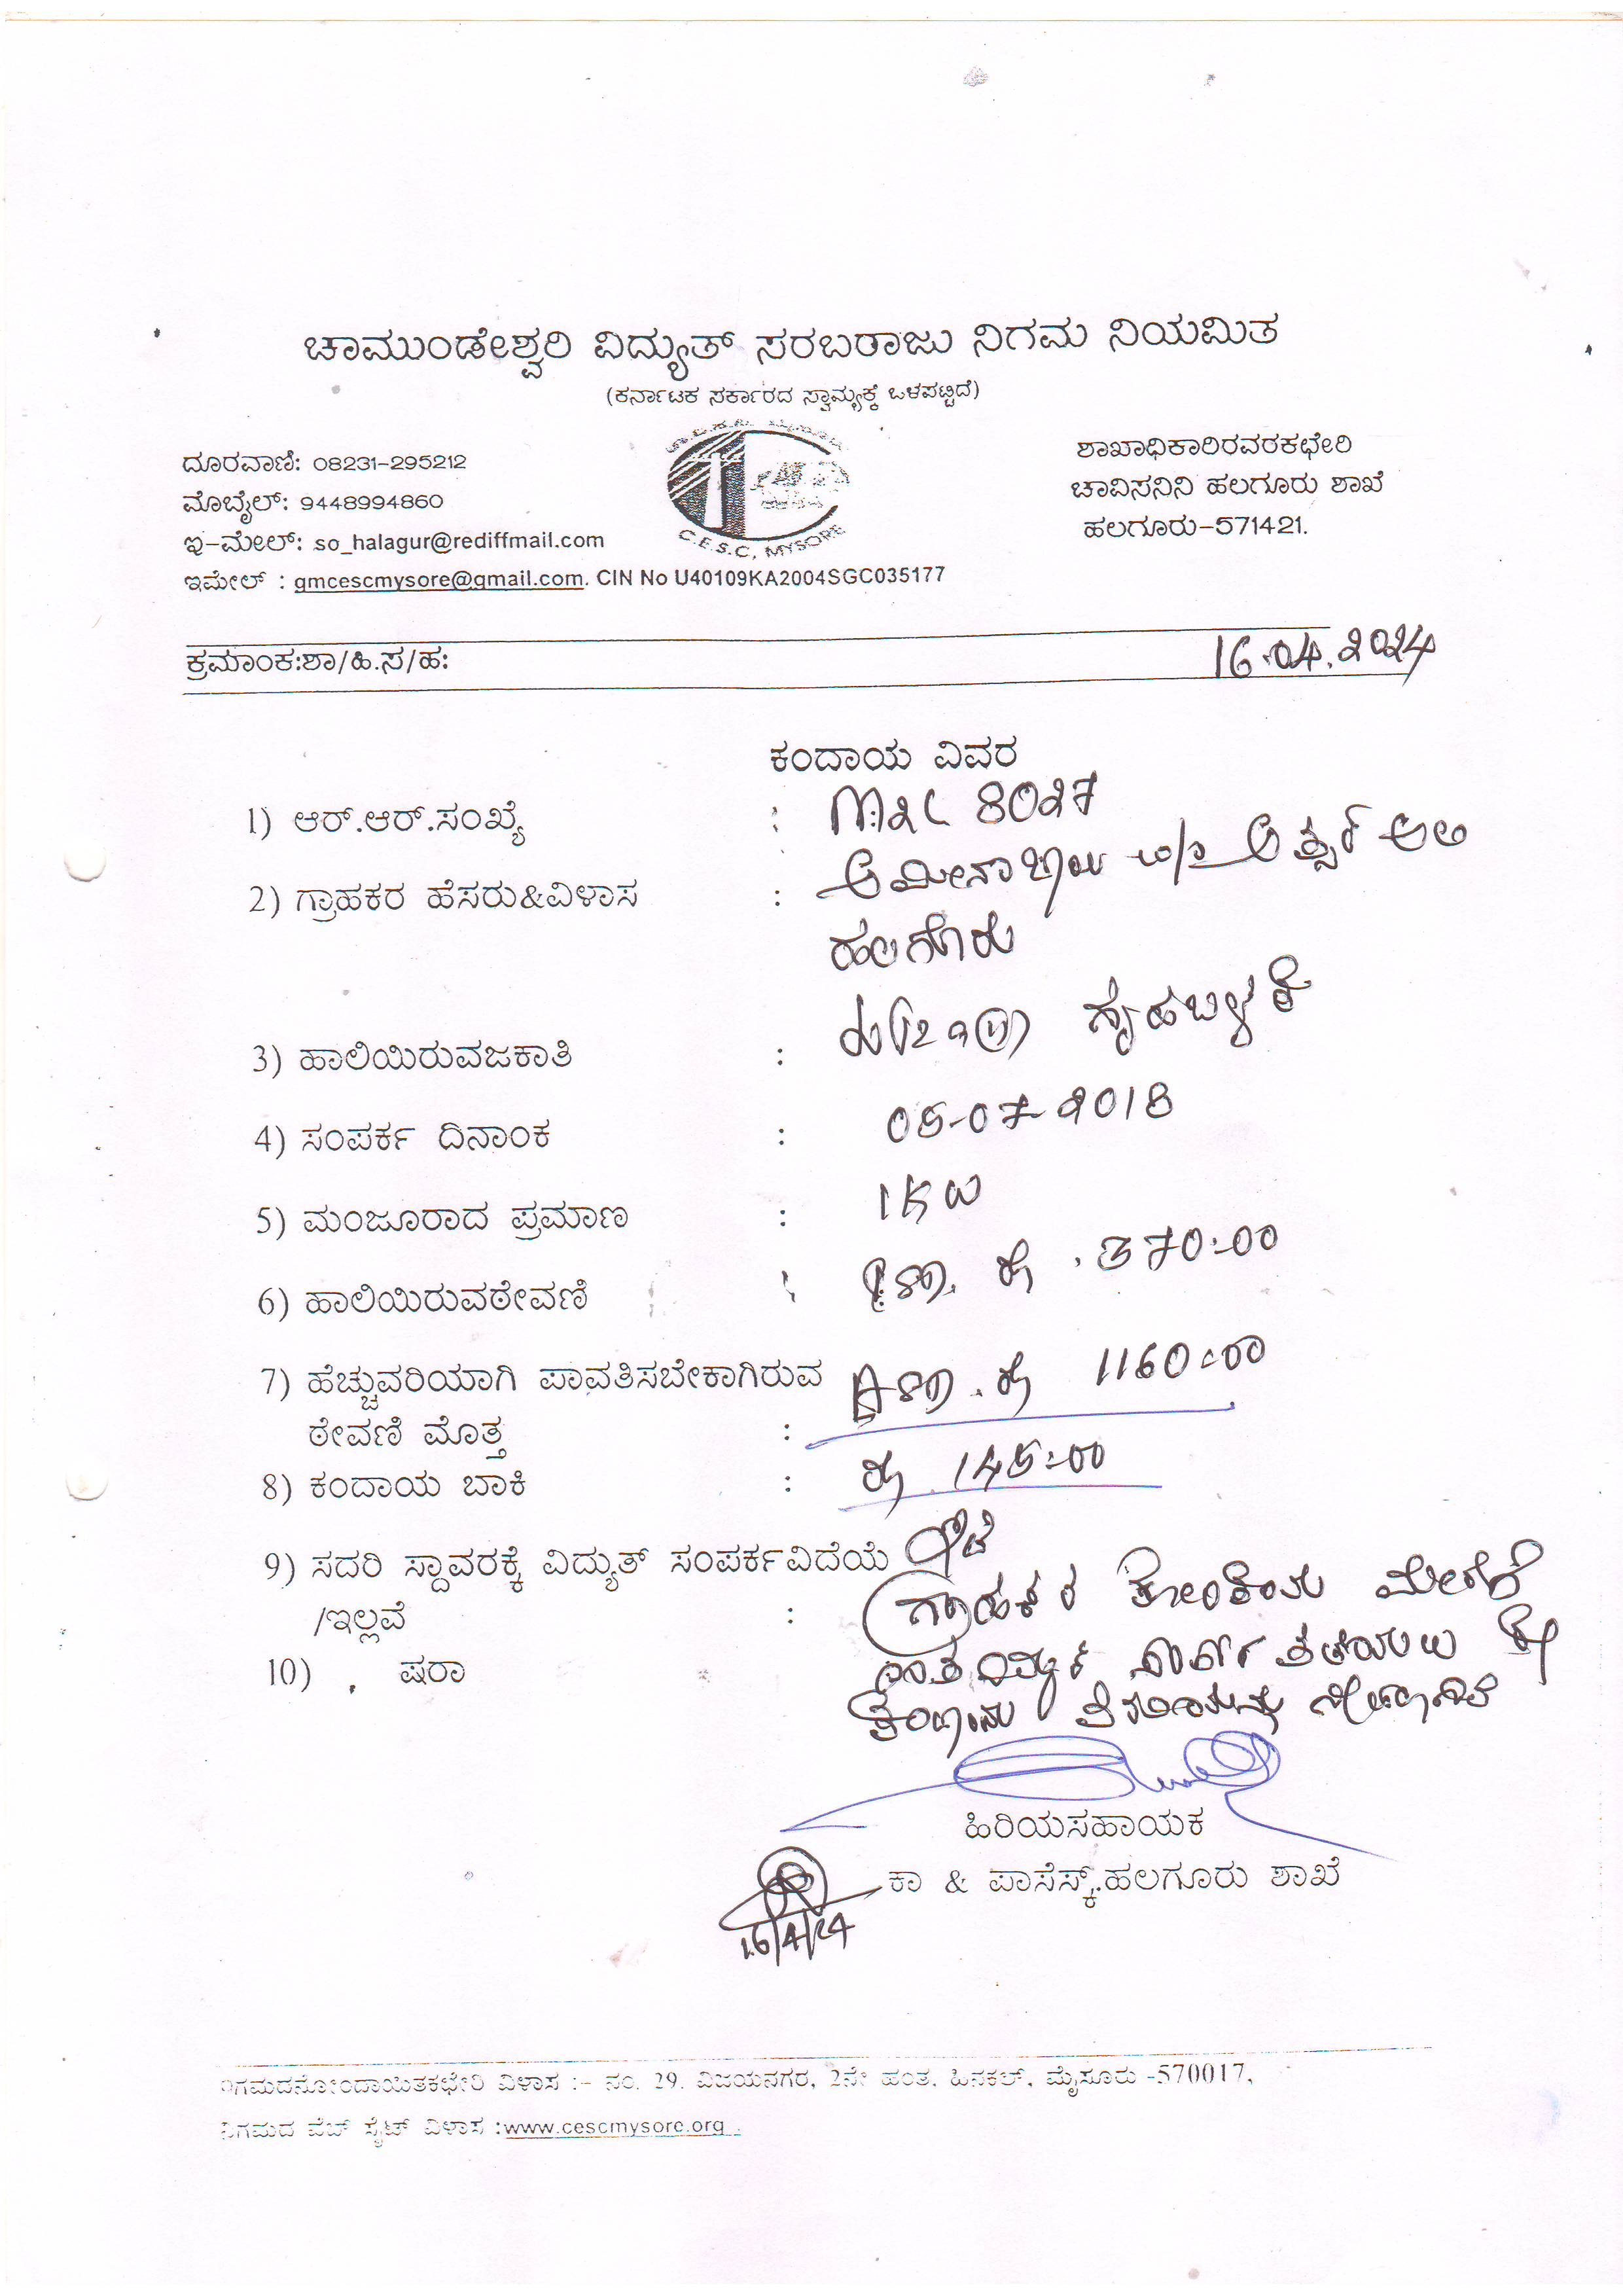 ಚಾಮುಂಡೇಶ್ವರಿ ವಿದ್ಯುತ್ ಸರಬರಾಜು ನಿಗಮ ನಿಯಮಿತ
(ಕರ್ನಾಟಕ ಸರ್ಕಾರದ ಸ್ವಾಮ್ಯಕ್ಕೆ ಒಳಪಟ್ಟಿದೆ)
ದೂರವಾಣಿ: 08231-295212
ಮೊಬೈಲ್: 9448994860
ಇ-ಮೇಲ್: so_halagur@rediffmail.com
ಇಮೇಲ್ : gmcescmysore@gmail.com. CIN No U40109KA2004SGC035177
C.E.S.C, MYSORE
ಶಾಖಾಧಿಕಾರಿರವರಕಛೇರಿ
ಚಾವಿಸನಿನಿ ಹಲಗೂರು ಶಾಖೆ
ಹಲಗೂರು-571421.
ಕ್ರಮಾಂಕ:ಶಾ/ಹಿ.ಸ/ಹ: 16.04.2024
ಕಂದಾಯ ವಿವರ
1) ಆರ್.ಆರ್.ಸಂಖ್ಯೆ : 8027
2) ಗ್ರಾಹಕರ ಹೆಸರು&ವಿಳಾಸ : ಅಮೀನಾಬಾಯಿ ಅಲಿ
ಹಲಗೂರು
3) ಹಾಲಿಯಿರುವಜಕಾತಿ : ಗೃಹಬಳಕೆ
4) ಸಂಪರ್ಕ ದಿನಾಂಕ : 05-07-2018
5) ಮಂಜೂರಾದ ಪ್ರಮಾಣ : 1KW
6) ಹಾಲಿಯಿರುವಠೇವಣಿ : ರೂ. 370=00
7) ಹೆಚ್ಚುವರಿಯಾಗಿ ಪಾವತಿಸಬೇಕಾಗಿರುವ ASD. ರೂ 1160=00
ಠೇವಣಿ ಮೊತ್ತ :
8) ಕಂದಾಯ ಬಾಕಿ : ರೂ 145=00
9) ಸದರಿ ಸ್ಥಾವರಕ್ಕೆ ವಿದ್ಯುತ್ ಸಂಪರ್ಕವಿದೆಯೆ ಇದೆ
/ಇಲ್ಲವೆ : ಗ್ರಾಹಕರ ಕೋರಿಕೆಯ ಮೇರೆಗೆ
10) ಷರಾ
ಕಂದಾಯ
ಹಿರಿಯಸಹಾಯಕ
ಕಾ & ಪಾಸೆಸ್ಕ್.ಹಲಗೂರು ಶಾಖೆ
16/4/24
ನಿಗಮದನೋಂದಾಯಿತಕಛೇರಿ ವಿಳಾಸ :- ನಂ. 29. ವಿಜಯನಗರ, 2ನೇ ಹಂತ. ಹಿನಕಲ್, ಮೈಸೂರು -570017,
ನಿಗಮದ ವೆಬ್ ಸೈಟ್ ವಿಳಾಸ :www.cescmysore.org .